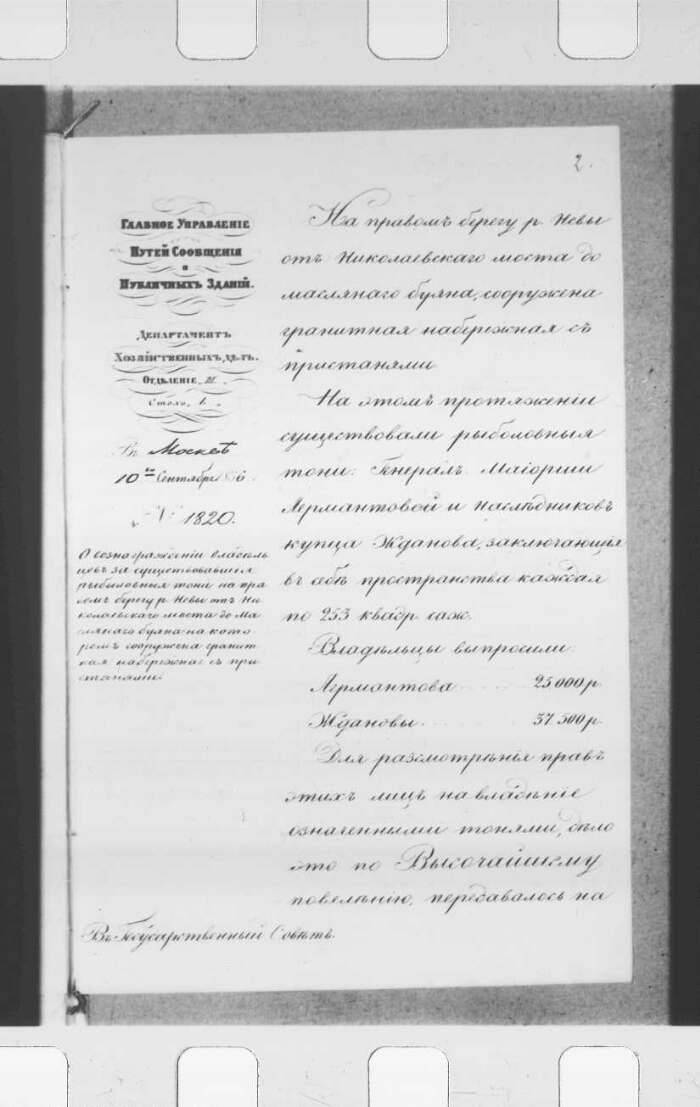 2.
Главное Управленіе
Путей Сообщенія
и
Публичныхъ Зданій.
Департаментъ
Хозяйственныхъ дѣлъ.
Отдѣленіе III.
Столъ 1.
Въ Москвѣ
10го Сентября 1856
№ 1820.
О вознагражденіи владѣль
цевъ за существовавшія
рыболовныя тони на пра
вомъ берегу р. Невы отъ Ни
колаевскаго моста до Ма
слянаго буяна на кото
ромъ сооружена гранит
ная набережная съ при
станями.
На правомъ берегу р. Невы
отъ Николаевскаго моста до
маслянаго буяна, сооружена
гранитная набережная съ
пристанями.
На этомъ протяженіи
существовали рыболовныя
тони: Генералъ Маіорши
Лермантовой и наслѣдниковъ
купца Жданова, заключающія
въ себѣ пространства каждая
по 253 квадр. саж.
Владѣльцы выпросили:
Лермантова 25.000 р.
Ждановы 37.500 р.
Для разсмотрѣнія правъ
этихъ лицъ на владѣніе
означенными тонями, дѣло
это по Высочайшему
повелѣнію, передавалось на
Въ Государственный Совѣтъ.